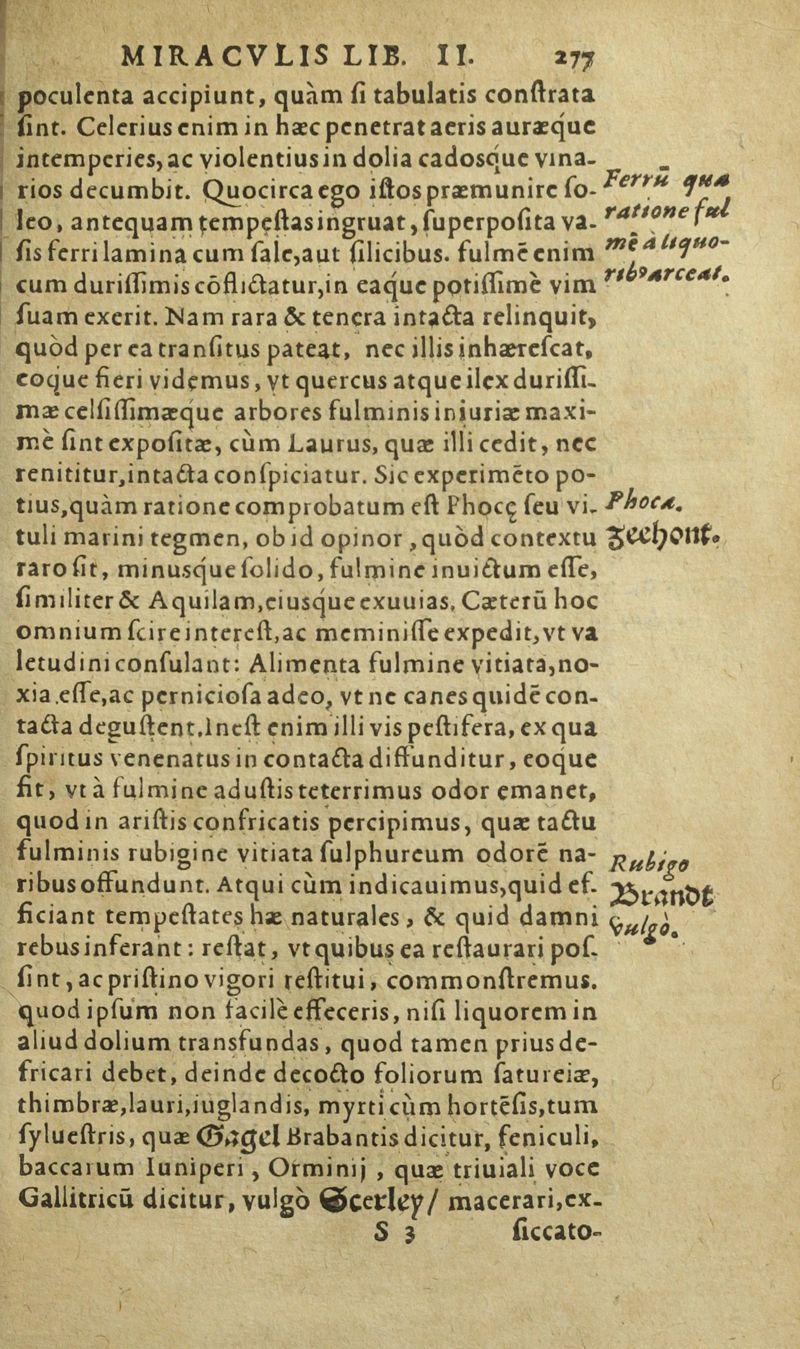 MIRACVLIS LIB. II. 277
poculenta accipiunt, quàm ſi tabulatis conſtrata
ſint. Celerius enim in hæc penetrat aeris auræque
intemperies, ac violentius in dolia cadosque vina-
rios decumbit. Quocirca ego iſtos præmunire ſo-
leo, antequam tempeſtas ingruat, ſuperpoſita va-
ſis ferri lamina cum ſale, aut ſilicibus. fulmē enim
cum duriſſimis cōflictatur, in eaque potiſſimè vim
ſuam exerit. Nam rara & tenera intacta relinquit,
quòd per ea tranſitus pateat, nec illis inhæreſcat,
eoque fieri videmus, vt quercus atque ilex duriſſi-
mæ celſiſſimæque arbores fulminis iniuriæ maxi-
mè ſint expoſitæ, cùm Laurus, quæ illi cedit, nec
renititur, intacta conſpiciatur. Sic experimēto po-
tius, quàm ratione comprobatum eſt Phocę ſeu vi-
tuli marini tegmen, ob id opinor, quòd contextu
raro ſit, minusque ſolido, fulmine inuictum eſſe,
ſimiliter & Aquilam, eiusque exuuias. Cæterū hoc
omnium ſcire intereſt, ac meminiſſe expedit, vt va
letudini conſulant: Alimenta fulmine vitiata, no-
xia eſſe, ac pernicioſa adeo, vt ne canes quidē con-
tacta deguſtent. Ineſt enim illi vis peſtifera, ex qua
ſpiritus venenatus in contacta diffunditur, eoque
fit, vt à fulmine aduſtis teterrimus odor emanet,
quod in ariſtis confricatis percipimus, quæ tactu
fulminis rubigine vitiata ſulphureum odorē na-
ribus offundunt. Atqui cùm indicauimus, quid ef-
ficiant tempeſtates hæ naturales, & quid damni
rebus inferant: reſtat, vt quibus ea reſtaurari poſ-
ſint, ac priſtino vigori reſtitui, commonſtremus.
quod ipſum non facilè effeceris, niſi liquorem in
aliud dolium transfundas, quod tamen prius de-
fricari debet, deinde decocto foliorum ſatureiæ,
thimbræ, lauri, iuglandis, myrti cùm hortēſis, tum
ſylueſtris, quæ Gagel Brabantis dicitur, feniculi,
baccarum Iuniperi, Orminij, quæ triuiali voce
Gallitricū dicitur, vulgò Scerley/ macerari, ex-
S 3 ſiccato-
Ferrū qua
ratione ful
mē a liquo-
ribꝰ arceat.
Phoca.
Zeehont.
Rubigo
Brandt
vulgò.